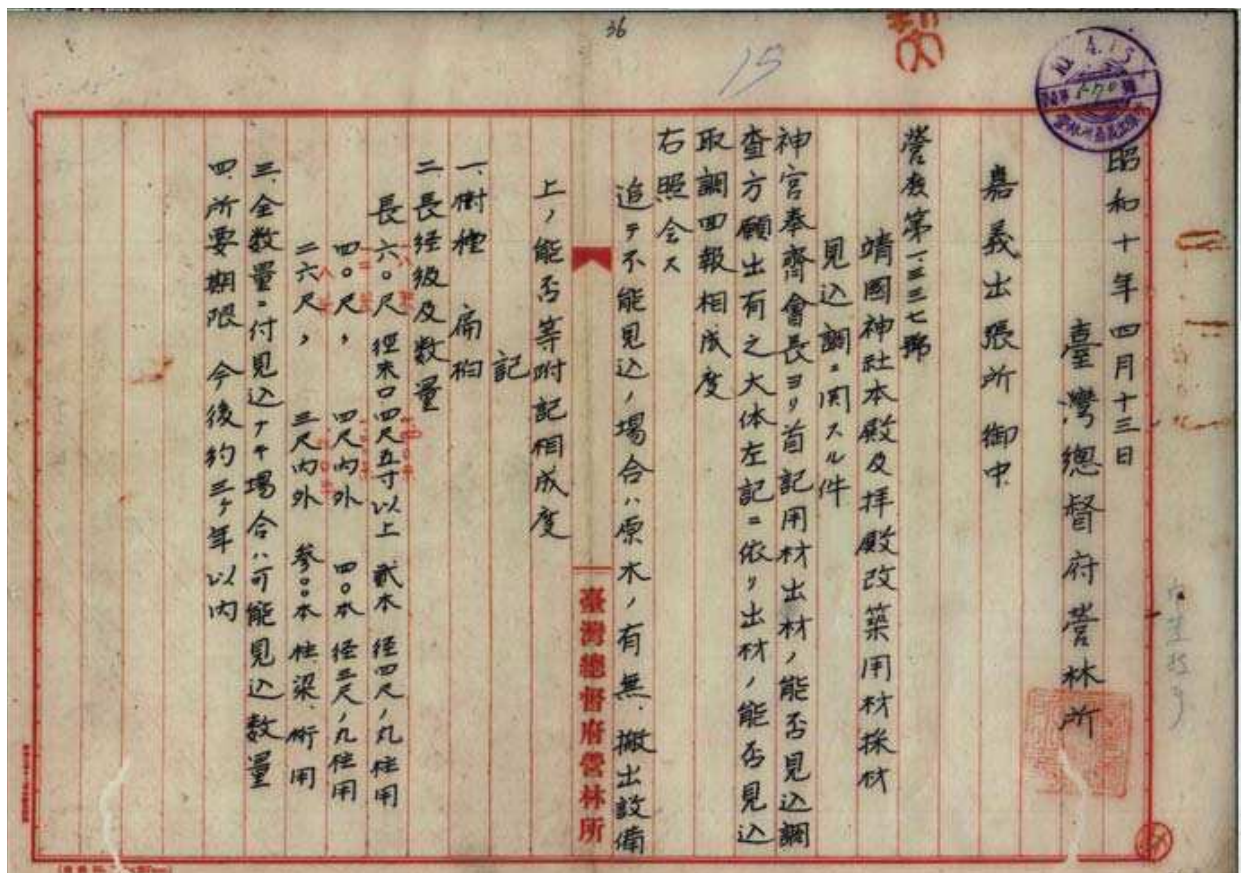 36
15
昭和十年四月十三日
臺灣總督府營林所
嘉義出張所 御中
營友第一三三七號
靖國神社本殿及拝殿改築用材採材
見込調ニ関スル件
神宮奉齋會長ヨリ首記用材出材ノ能否見込調
査方願出有之大体左記ニ依リ出材ノ能否見込
取調回報相成度
右照会ス
追テ不能見込ノ場合ハ原木ノ有無、搬出設備
臺灣總督府營林所
上ノ能否等附記相成度
記
一、樹種 扁柏
二、長径級及数量
長六〇尺 径末口四尺五寸以上 貳本 径四尺ノ丸柱用
四〇尺、 四尺内外 四〇本 径三尺ノ丸柱用
二六尺、 三尺内外 参〇〇本 柱梁、桁用
三、全数量ニ付見込ナキ場合ハ可能見込数量
四、所要期限 今後約三ヶ年以内